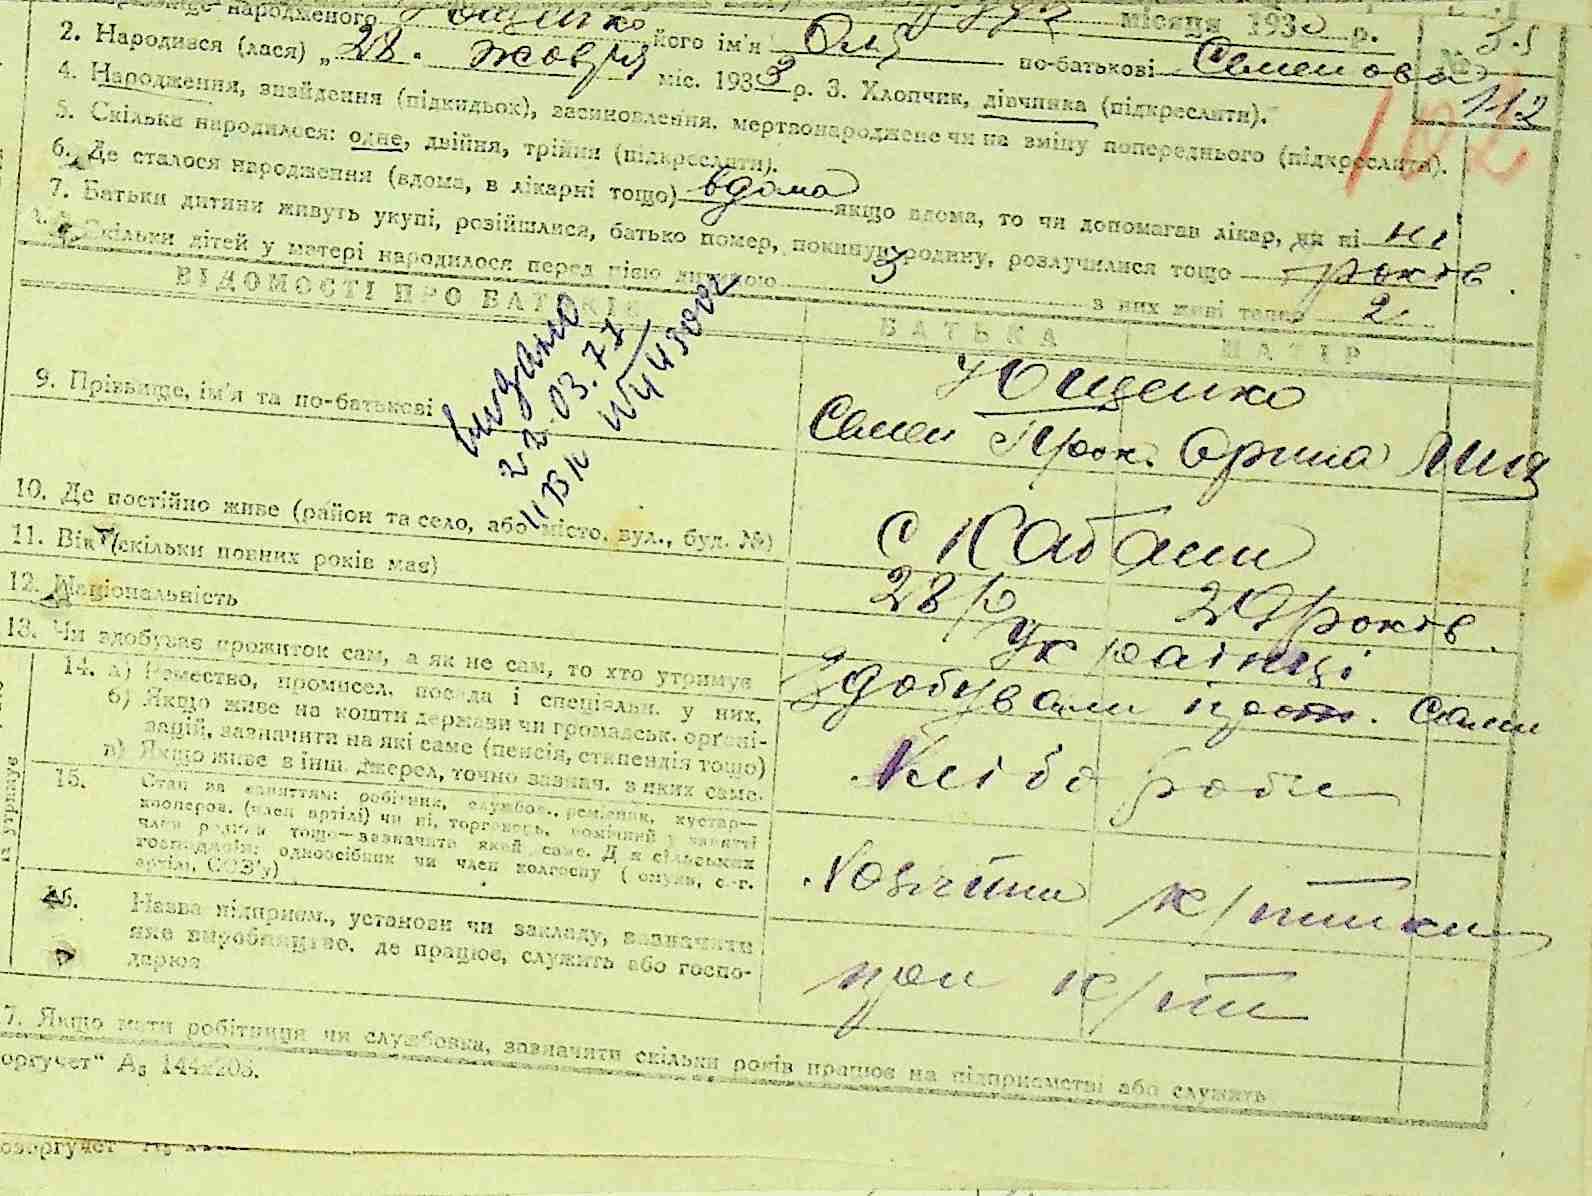 місяця 1933 р.
народженого Ющенко його ім'я Оля по-батькові Семенова
2. Народився (лася) „28. жовтня міс. 1933 р. 3. Хлопчик, дівчинка (підкреслити).
4. Народження, знайдення (підкидьок), засиновлення, мертвонароджене чи на зміну попереднього (підкреслити).
5. Скільки народилося: одне, двійня, трійня (підкреслити).
6. Де сталося народження (вдома, в лікарні тощо) вдома якщо вдома, то чи допомагав лікар, чи ні ні
7. Батьки дитини живуть укупі, розійшлися, батько помер, покинув родину, розлучилися тощо років
Скільки дітей у матері народилося перед цією дитиною 3 з них живі тепер 2
№ 35
113
102
ВІДОМОСТІ ПРО БАТЬКІВ БАТЬКА МАТІР
видано
22.03.71
II ВК № 43002
9. Прізвище, ім'я та по-батькові Ющенко
Семен Прок. Орина
10. Де постійно живе (район та село, або місто, вул., буд. №) с Кабани
11. Вік (скільки повних років має) 28 р 29 років
12. Національність Українці
13. Чи здобуває прожиток сам, а як не сам, то хто утримує Здобували прож. сами
14. а) Ремество, промисел, посада і спеціальн. у них.
б) Якщо живе на кошти держави чи громадськ. органі-
зацій, зазначити на які саме (пенсія, стипендія тощо)
в) Якщо живе з інш. джерел, точно зазнач. з яких саме.
Хлібороби
15. Стан за заняттям: робітник, службов., ремісник, кустар—
кооперов. (член артілі) чи ні, торговець, помічний у занятті
член родини тощо—зазначити який саме. Для сільських
господарів: одноосібник чи член колгоспу (комуни, с.-г.
артілі, СОЗ'у)
16. Назва підприєм., установи чи закладу, зазначити
яке виробництво, де працює, служить або госпо-
дарює
7. Якщо мати робітниця чи службовка, зазначити скільки років працює на підприємстві або служить
оргучет" А₅ 144х203.